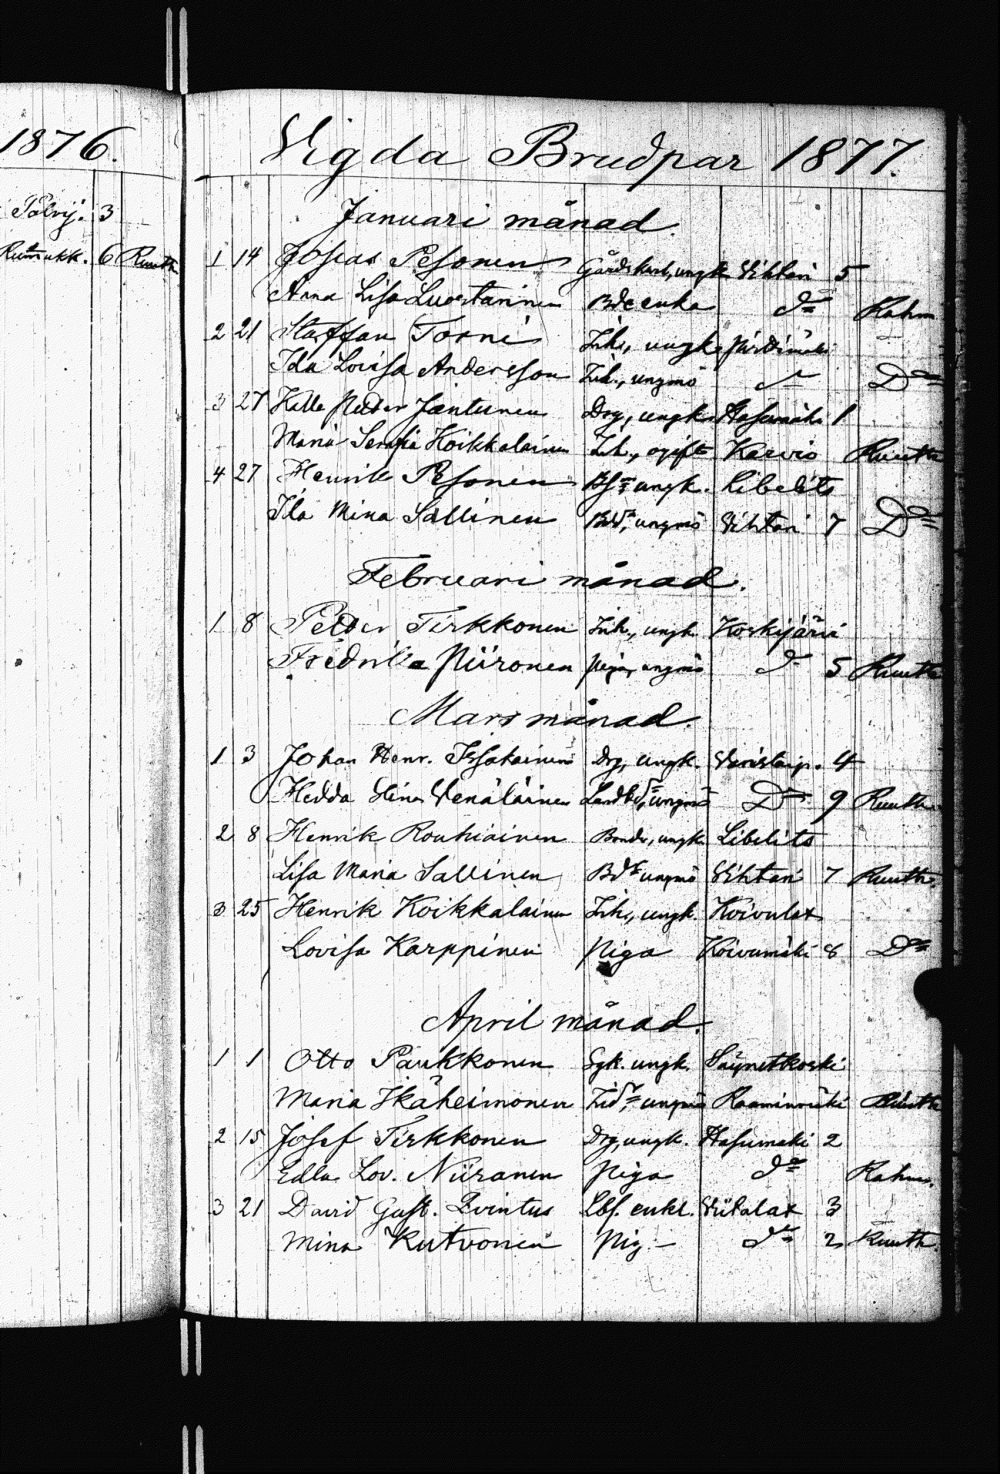 1876.
3
6 Ruuth
Vigda Brudpar 1877.
Januari månad.
1 14 Josias Pesonen Gårdskarl, ungk Vihtari 5
Anna Lisa Luostarinen Bdeenka do Rahm
2 21 Staffan Torni Inh., ungk.
Ida Lovisa Andersson Inh., ungmö Do
3 27 Kalle Petter Jantunen Drg, ungk. Hasumäki 1
Maria Serafia Koikkalainen Inh., ogift Karvio Ruuth
4 27 Henrik Pesonen Bs ungk. Libelits
Ida Mina Sallinen Bdr, ungmö Vihtari 7 Do
Februari månad.
1 8 Petter Tirkkonen Inh., ungk. Koskijärvi
Fredrika Piironen piga, ungmö do 5 Ruuth
Mars månad.
1 3 Johan Henr. Issakainen Drg, ungk. Varislamp. 4
Hedda Stina Venäläinen Landbdr, ungmö Do 9 Ruuth
2 8 Henrik Rouhiainen Bonde, ungk. Libelits
Lisa Maria Sallinen Bdr ungmö Vihtari 7 Ruuth.
3 25 Henrik Koikkalainen Inh., ungk. Koivulax
Lovisa Karppinen Piga Koivumäki 8 Do
April månad.
1 1 Otto Paukkonen ungk. Säynetkoski
Maria Ikäheimonen ungmö Ruuth
2 15 Josef Tirkkonen Drg, ungk. Hasumäki 2
Edla Lov. Niiranen Piga do Rahm.
3 21 David Gust. Qvintus Lbs. enkl. Viitalax 3
Mina Kutvonen Pig.- do 2 Ruuth.